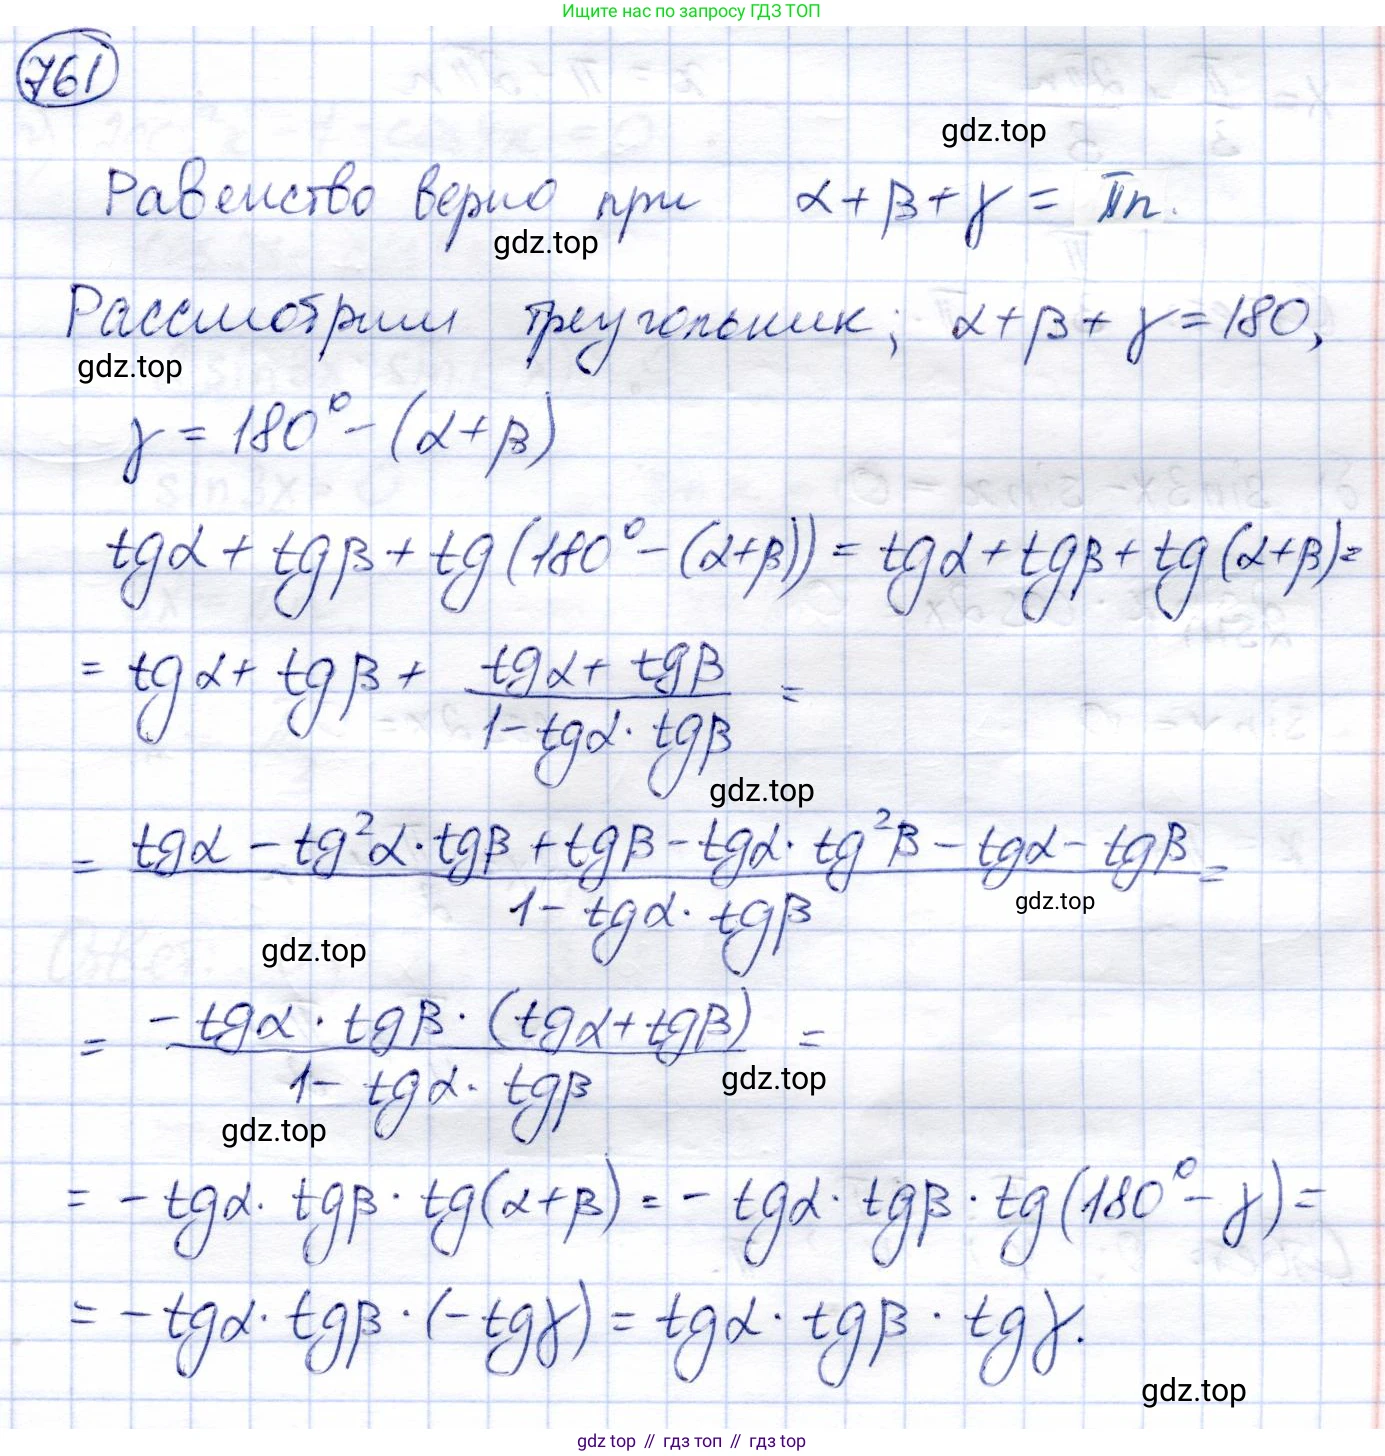 Ищите нас по запросу ГДЗ ТОП
761
gdz.top
Равенство верно при α + β + γ = πn.
gdz.top
Рассмотрим треугольник; α + β + γ = 180,
gdz.top
γ = 180° - (α + β)
tgα + tgβ + tg(180° - (α+β)) = tgα + tgβ + tg(α+β) =
= tgα + tgβ + \frac{tgα + tgβ}{1 - tgα · tgβ} =
gdz.top
= \frac{tgα - tg²α · tgβ + tgβ - tgα · tg²β - tgα - tgβ}{1 - tgα · tgβ} =
gdz.top
gdz.top
= \frac{- tgα · tgβ · (tgα + tgβ)}{1 - tgα · tgβ} =
gdz.top
gdz.top
= - tgα · tgβ · tg(α+β) = - tgα · tgβ · tg(180° - γ) =
= - tgα · tgβ · (- tgγ) = tgα · tgβ · tgγ.
gdz.top
gdz top // гдз топ // гдз top